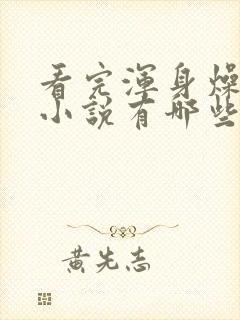 看完渾身燥
小說有哪些
黃先志